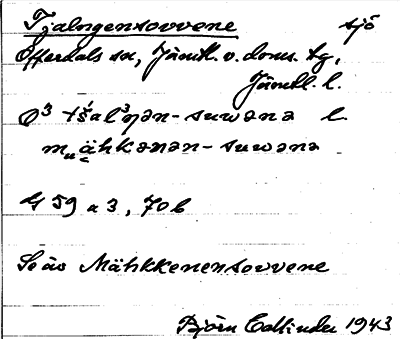 Tjalngensovvene sjö
Offerdals sn, Jämtl. v. doms. tg,
Jämtl. l.
O³ tšal³ŋən-suwəna l.
mᵤähkənən-suwəna
G 59 a 3, 70 b
Se äv Mähkkenensovvene
Björn Collinder 1943